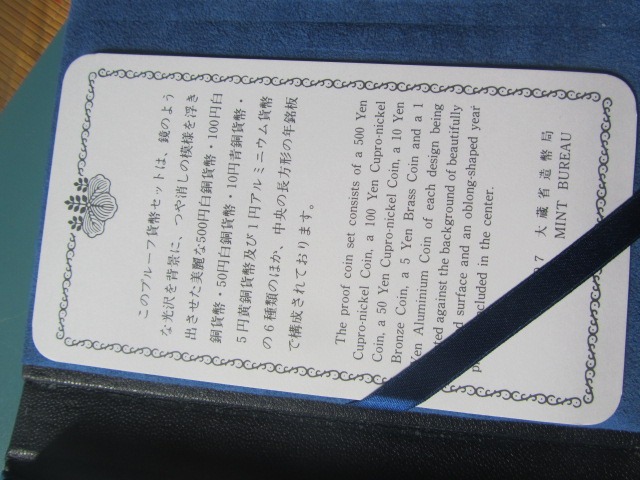 このプルーフ貨幣セットは、鏡のよう
な光沢を背景に、つや消しの模様を浮き
出させた美麗な500円白銅貨幣・100円白
銅貨幣・50円白銅貨幣・10円青銅貨幣・
5円黄銅貨幣及び1円アルミニウム貨幣
の6種類のほか、中央の長方形の年銘板
で構成されております。
The proof coin set consists of a 500 Yen
Cupro-nickel Coin, a 100 Yen Cupro-nickel
Coin, a 50 Yen Cupro-nickel Coin, a 10 Yen
Bronze Coin, a 5 Yen Brass Coin and a 1
Yen Aluminium Coin of each design being
against the background of beautifully
surface and an oblong-shaped year
included in the center.
7 大蔵省造幣局
MINT BUREAU